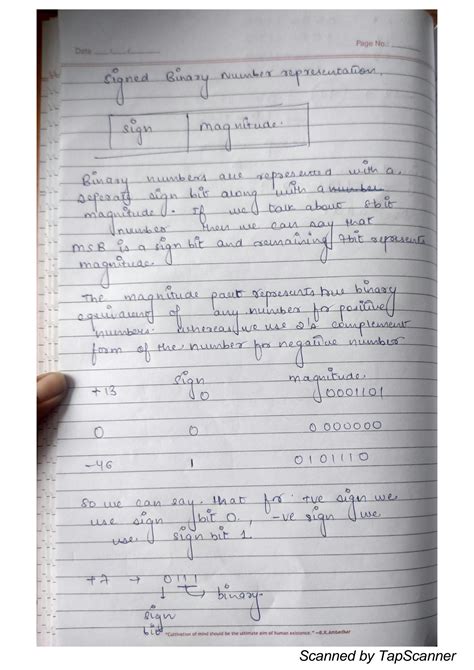 Date
Page No.:
Signed Binary Number representation.
sign magnitude.
Binary numbers are represented with a
seperate sign bit along with a number
magnitude. If we talk about 8bit
number then we can say that
MSB is a sign bit and remaining 7bit represents
magnitude.
The magnitude part represents true binary
equivalent of any number for positive
numbers whereas we use 2's complement
form of the number for negative number
sign magnitude.
+13 0 0001101
0 0 0000000
-46 1 0101110
So we can say that for +ve sign we
use sign bit 0, -ve sign we
use sign bit 1.
+7 → 0111
↓ → binary.
sign
bit
"Cultivation of mind should be the ultimate aim of human existence." –B.R.Ambedkar
Scanned by TapScanner